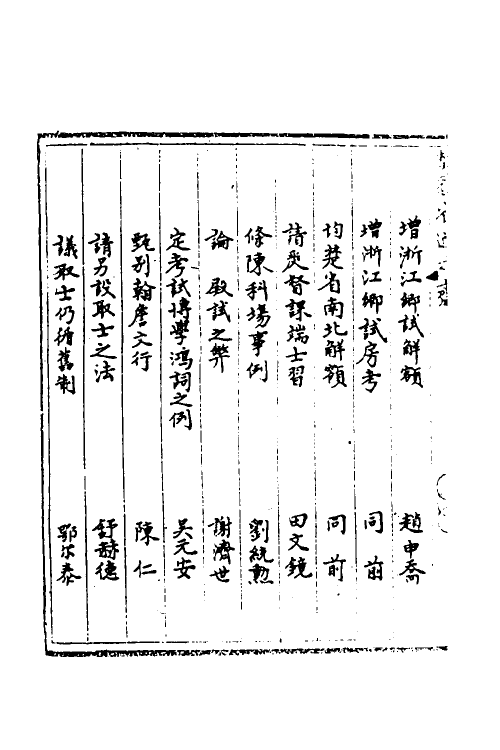 增浙江鄉試解額 趙申喬
增浙江鄉試房考 同前
均楚省南北解額 同前
請嚴督課端士習 田文鏡
條陳科場事例 劉統勲
論 殿試之弊 謝濟世
定考試博學鴻詞之例 吳元安
甄别翰詹文行 陳仁
請另設取士之法 舒赫德
議取士仍循舊制 鄂尔泰